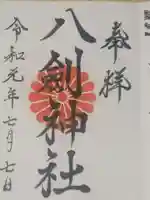 奉拝
八剣神社
令和元年七月七日